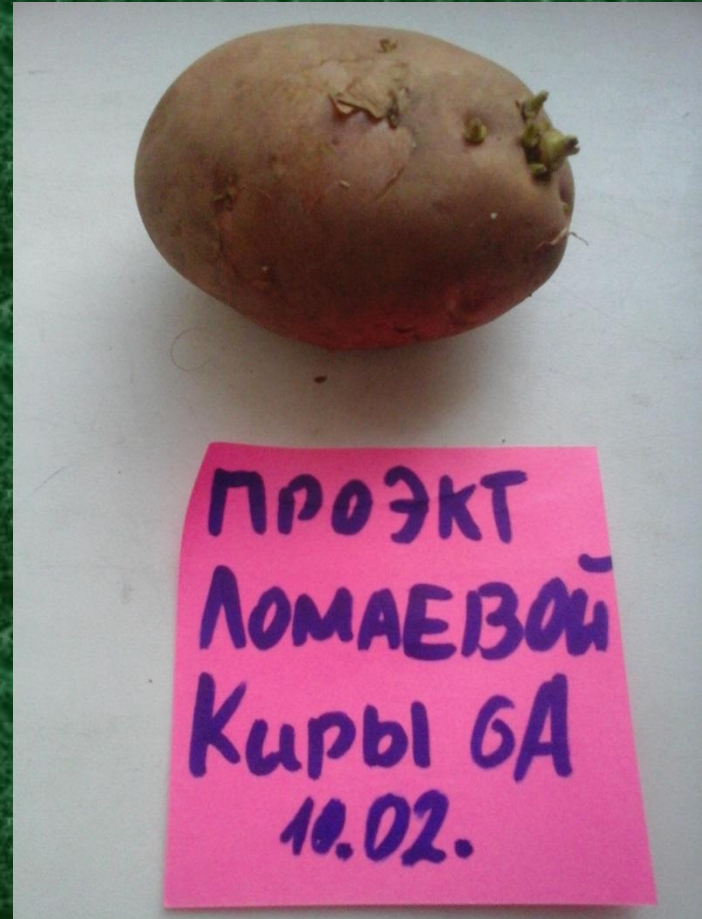 ПРОЭКТ
ЛОМАЕВОЙ
Киры 6А
10.02.